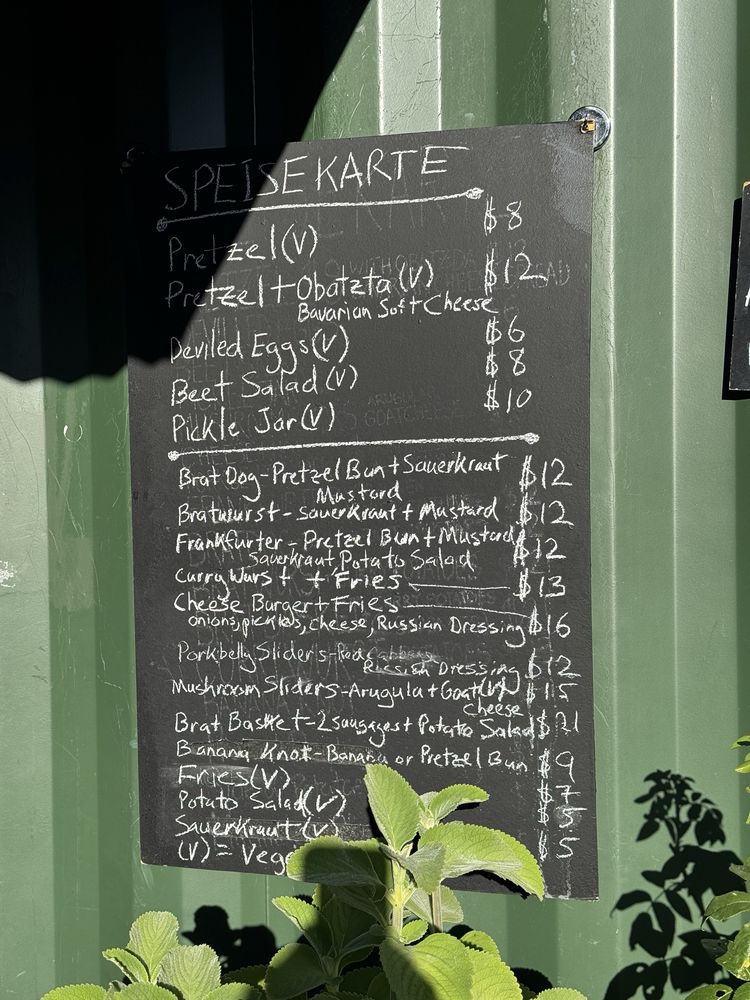 SPEISEKARTE
Pretzel (V) $8
Pretzel + Obatzta (V) $12
Bavarian Soft Cheese
Deviled Eggs (V) $6
Beet Salad (V) $8
Pickle Jar (V) $10
Brat Dog - Pretzel Bun + Sauerkraut $12
Mustard
Bratwurst - Sauerkraut + Mustard $12
Frankfurter - Pretzel Bun + Mustard $12
Sauerkraut Potato Salad
Curry Wurst + Fries $13
Cheese Burger + Fries $16
onions, pickles, cheese, Russian Dressing
Porkbelly Sliders - Red Cabbage $12
Russian Dressing
Mushroom Sliders - Arugula + Goat (V) $15
Cheese
Brat Basket - 2 saugages + Potato Salad $21
Banana Knot - Banana or Pretzel Bun $9
Fries (V) $7
Potato Salad (V) $5
Sauerkraut (V) $5
(V) = Vege